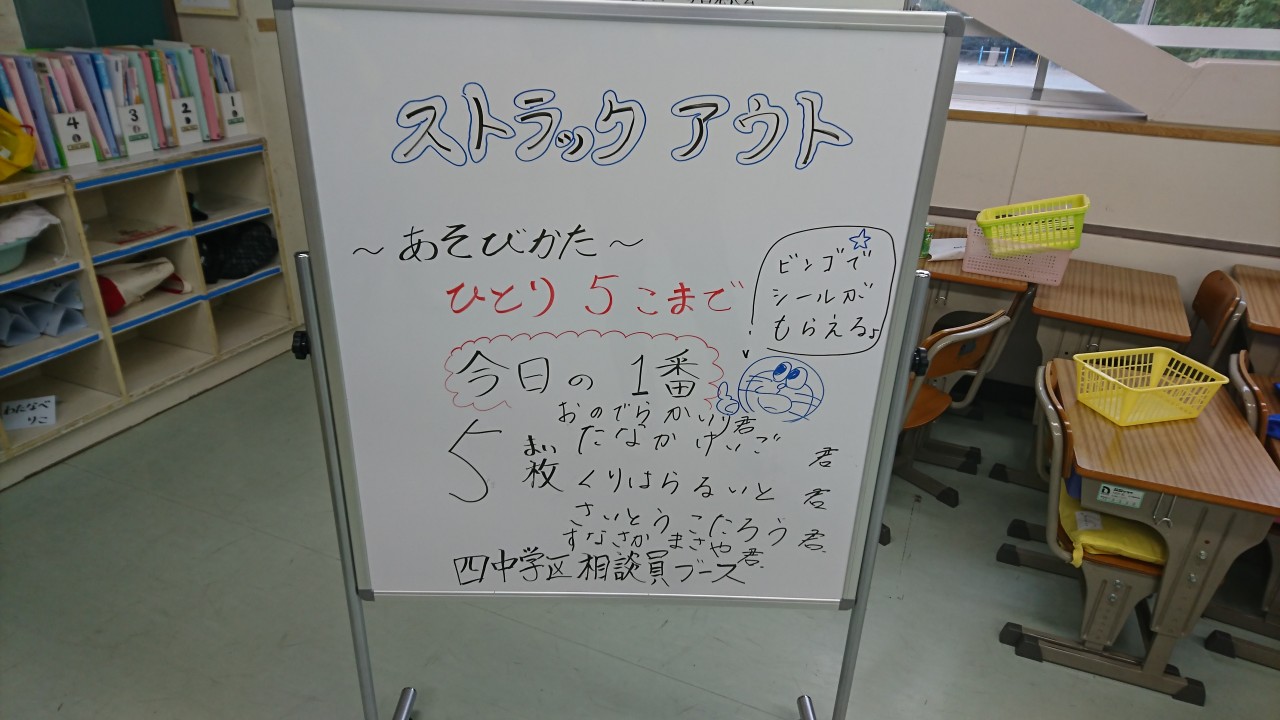 ストラックアウト
～あそびかた～
ひとり 5こまで
☆
ビンゴで
シールが
もらえる♪
今日の 1番
おのでらかいり君
5まい枚
たなかけいご 君
くりはらるいと 君
さいとうこたろう君
すなさか まさや君
四中学区相談員ブース
4
3
2
1
わたなべ
りこ
D